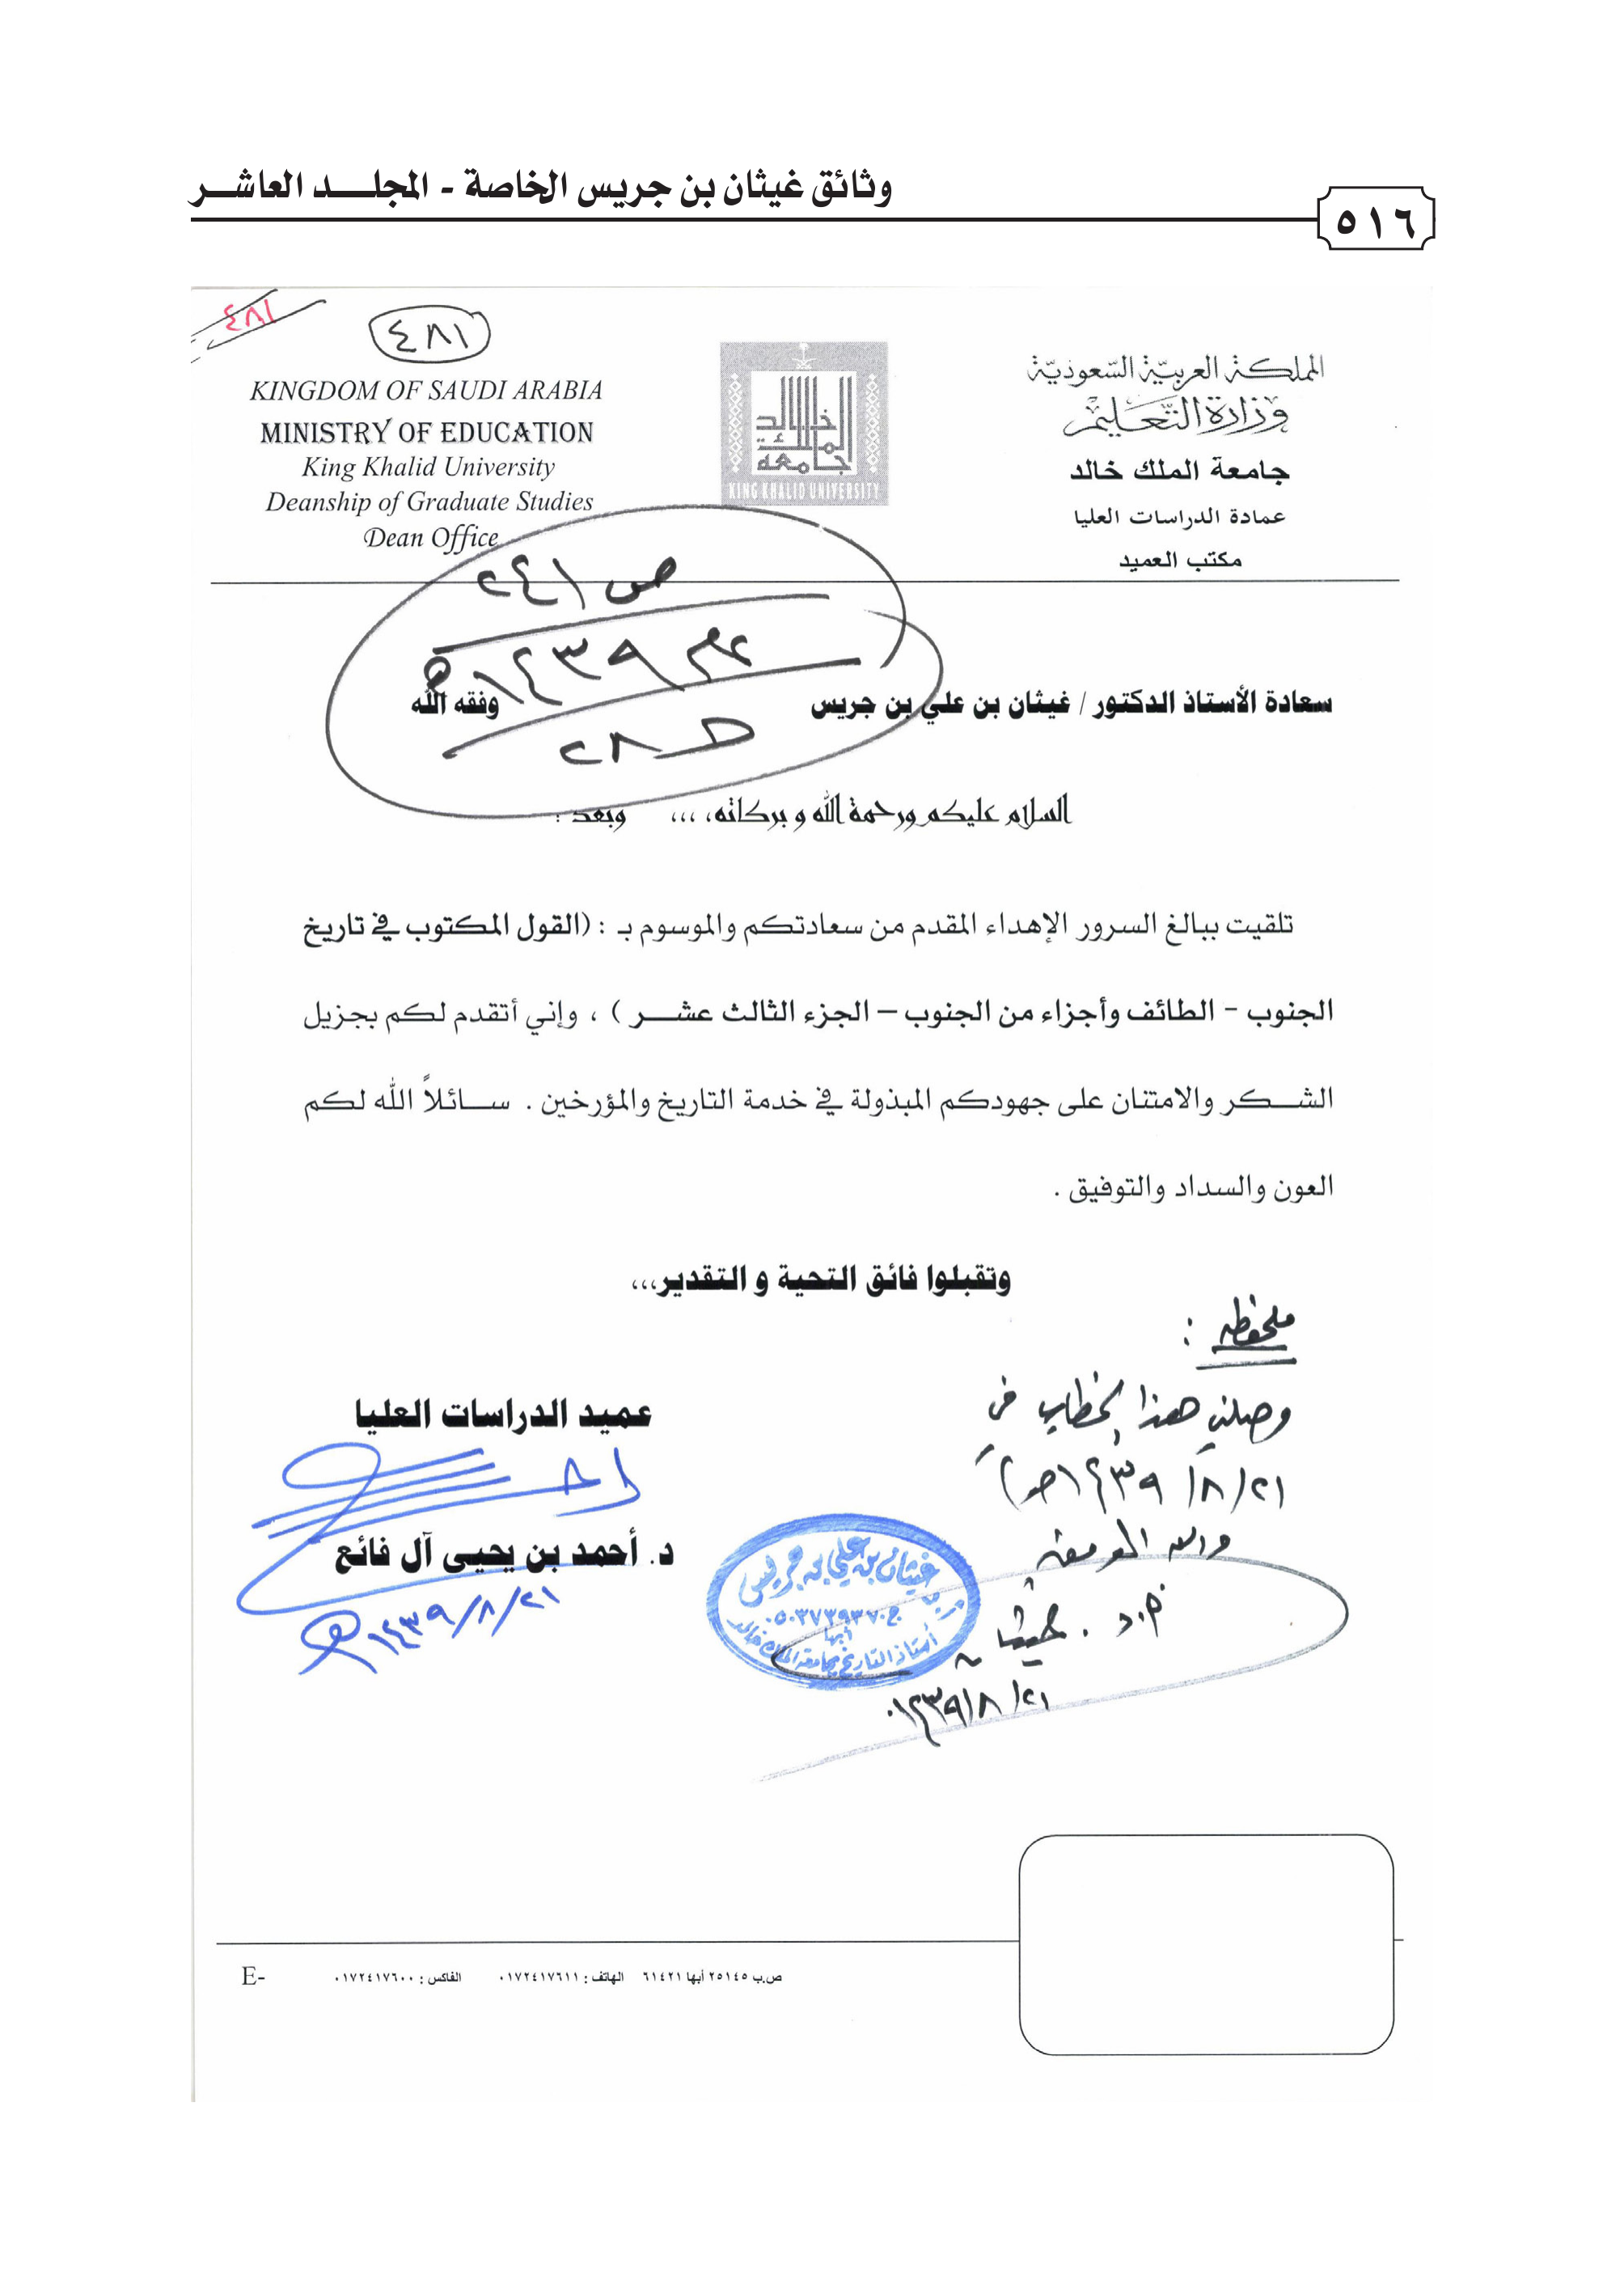 وثائق غيثان بن جريس الخاصة - المجلـــد العاشـــر
٥١٦
٤٨١
٤٨١
KINGDOM OF SAUDI ARABIA
MINISTRY OF EDUCATION
King Khalid University
Deanship of Graduate Studies
Dean Office
جامعة الملك خالد
KING KHALID UNIVERSITY
المملكة العربية السعودية
وزارة التعليم
جامعة الملك خالد
عمادة الدراسات العليا
مكتب العميد
ص ٢٤١
١٤٣٩هـ
٢٨
سعادة الأستاذ الدكتور / غيثان بن علي بن جريس وفقه الله
السلام عليكم ورحمة الله و بركاته، ،،، وبعد :
تلقيت ببالغ السرور الإهداء المقدم من سعادتكم والموسوم بـ : (القول المكتوب في تاريخ
الجنوب - الطائف وأجزاء من الجنوب – الجزء الثالث عشـــر ) ، وإني أتقدم لكم بجزيل
الشـــكر والامتنان على جهودكم المبذولة في خدمة التاريخ والمؤرخين . ســـائلاً الله لكم
العون والسداد والتوفيق .
وتقبلوا فائق التحية و التقدير،،،
ملحظه :
وصلني هذا الخطاب في
٢١/٨/١٤٣٩هـ)
والله الموفق
أ.د. غيثان
٢١/٨/١٤٣٩
عميد الدراسات العليا
د. أحمد بن يحيى آل فائع
٢١/٨/١٤٣٩هـ
غيثان بن علي بن جريس
ج ٠٥٠٣٧٣٩٣٧٠
أبها
أستاذ التاريخ بجامعة الملك خالد
ص.ب ٢٥١٤٥ أبها ٦١٤٢١ الهاتف : ٠١٧٢٤١٧٦١١ الفاكس : ٠١٧٢٤١٧٦٠٠ E-